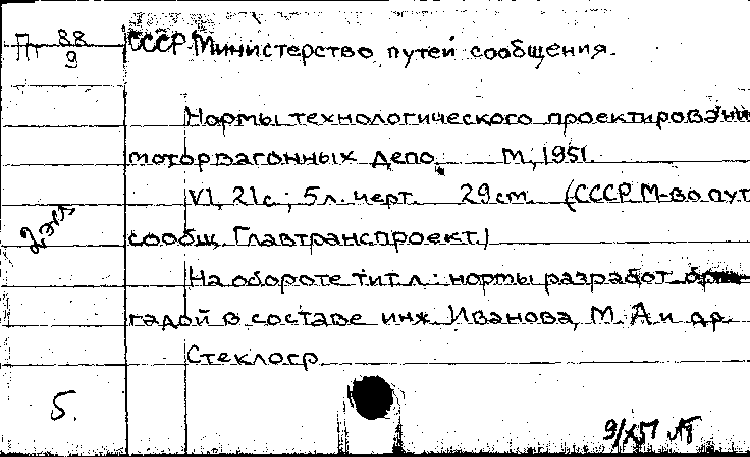 Пт 88
9
СССР. Министерство путей сообщения.
Нормы технологического проектировани
моторвагонных депо. М., 1951.
VI, 21с.; 5 л. черт. 29 см. (СССР. М-во пут.
2 экз.
сообщ. Главтранспроект.)
На обороте тит. л.: нормы разработ. бри-
гадой в составе инж. Иванова, М. А. и др.
Стеклогр.
5.
9/X51